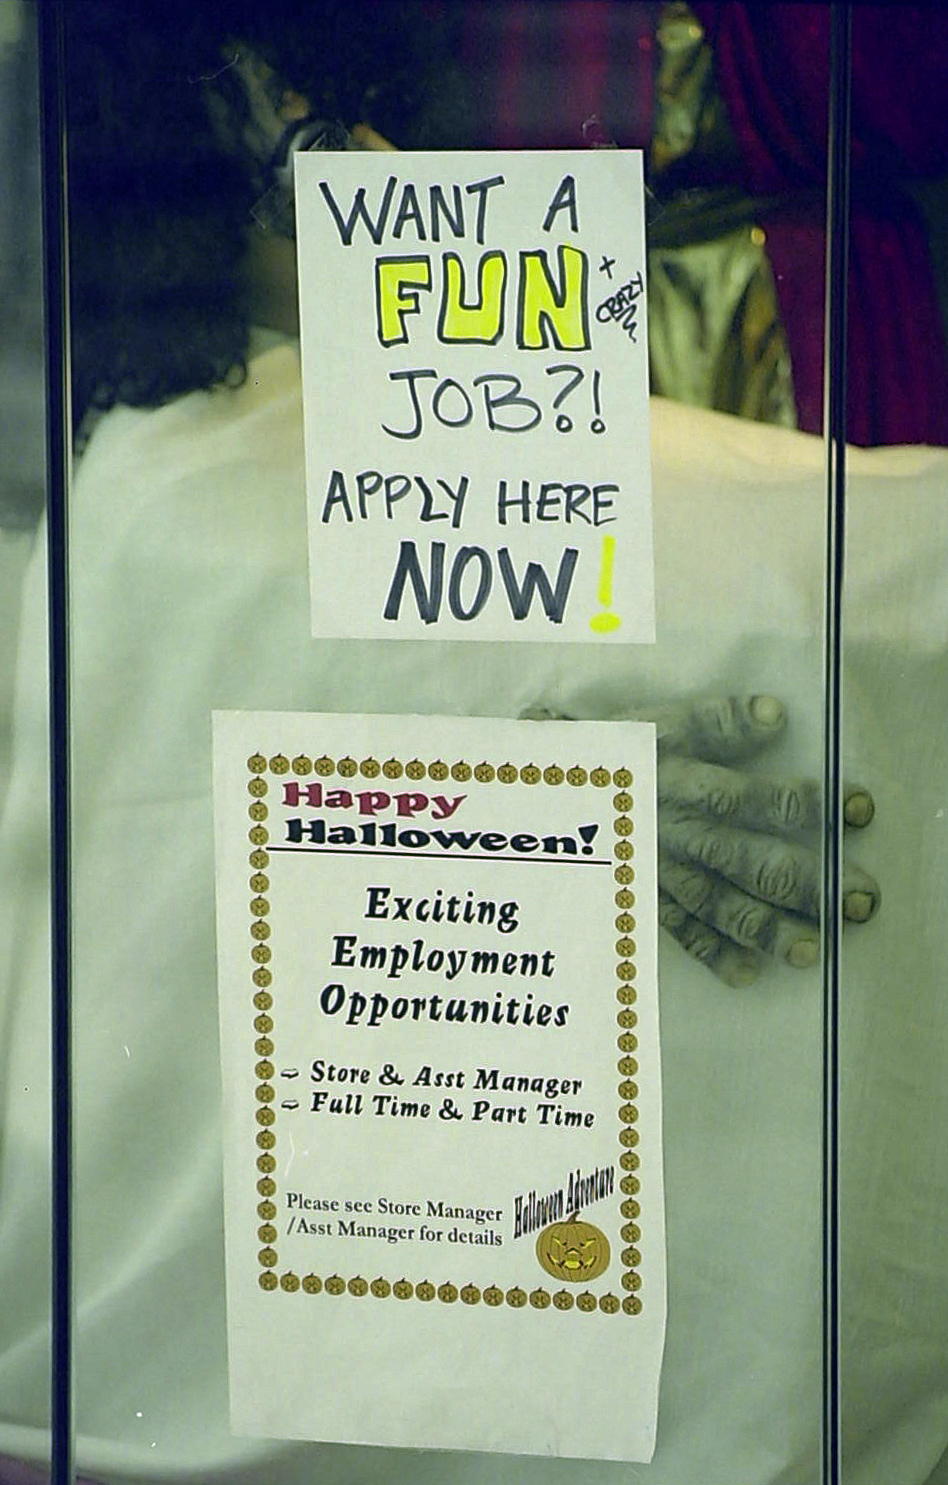 WANT A
FUN + CRAZY
JOB?!
APPLY HERE
NOW!
Happy
Halloween!
Exciting
Employment
Opportunities
⇨ Store & Asst Manager
⇨ Full Time & Part Time
Please see Store Manager
/Asst Manager for details
Halloween Adventure